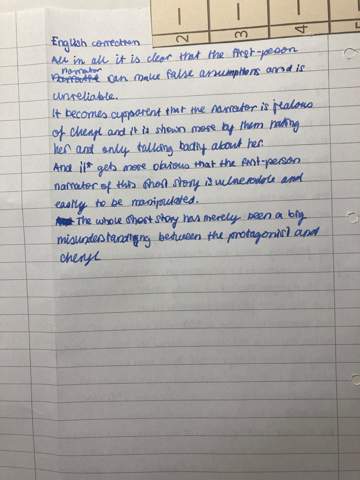 2 —
3 —
4 —
5
English correction
All in all it is clear that the first-person
narrator can make false assumptions and is
unreliable.
It becomes apparent that the narrator is jealous
of cheryl and it is shown more by them hating
her and only talking badly about her.
And it gets more obvious that the first-person
narrator of this short story is vulnerable and
easily to be manipulated.
The whole short story has merely been a big
misunderstanding between the protagonist and
cheryl